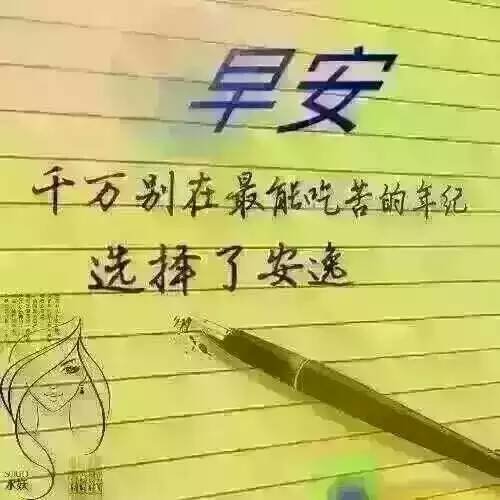 早安
千万别在最能吃苦的年纪
选择了安逸